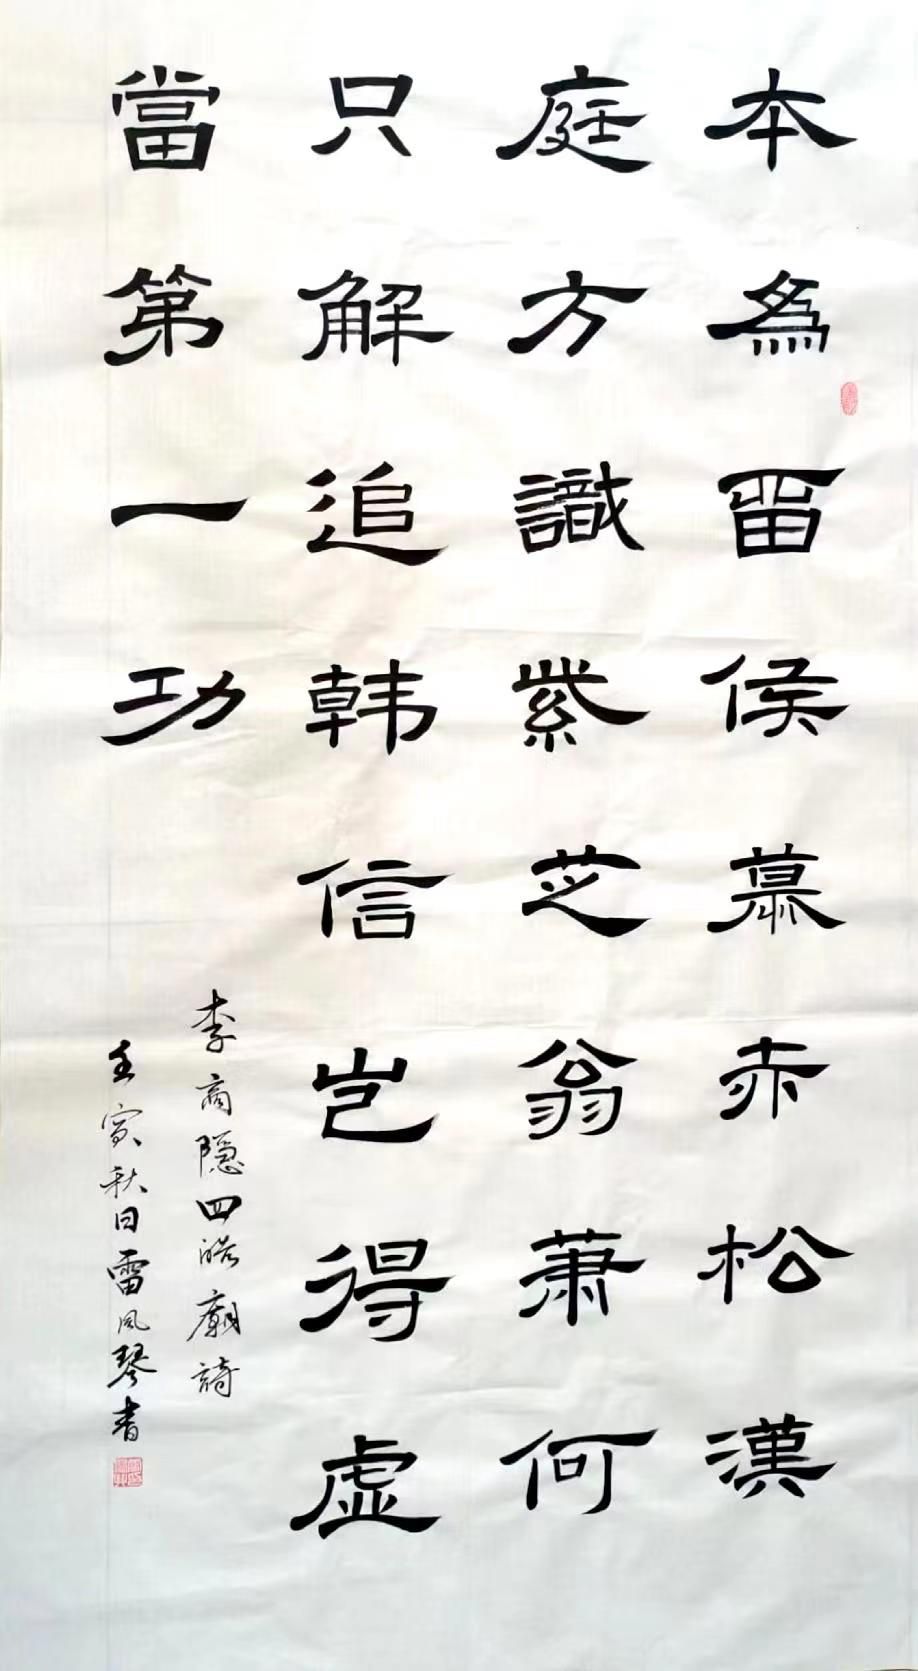 本為留侯慕赤松漢
庭方識紫芝翁蕭何
只解追韩信岂得虚
當第一功
李商隐四皓廟詩
壬寅秋日雷风琴書